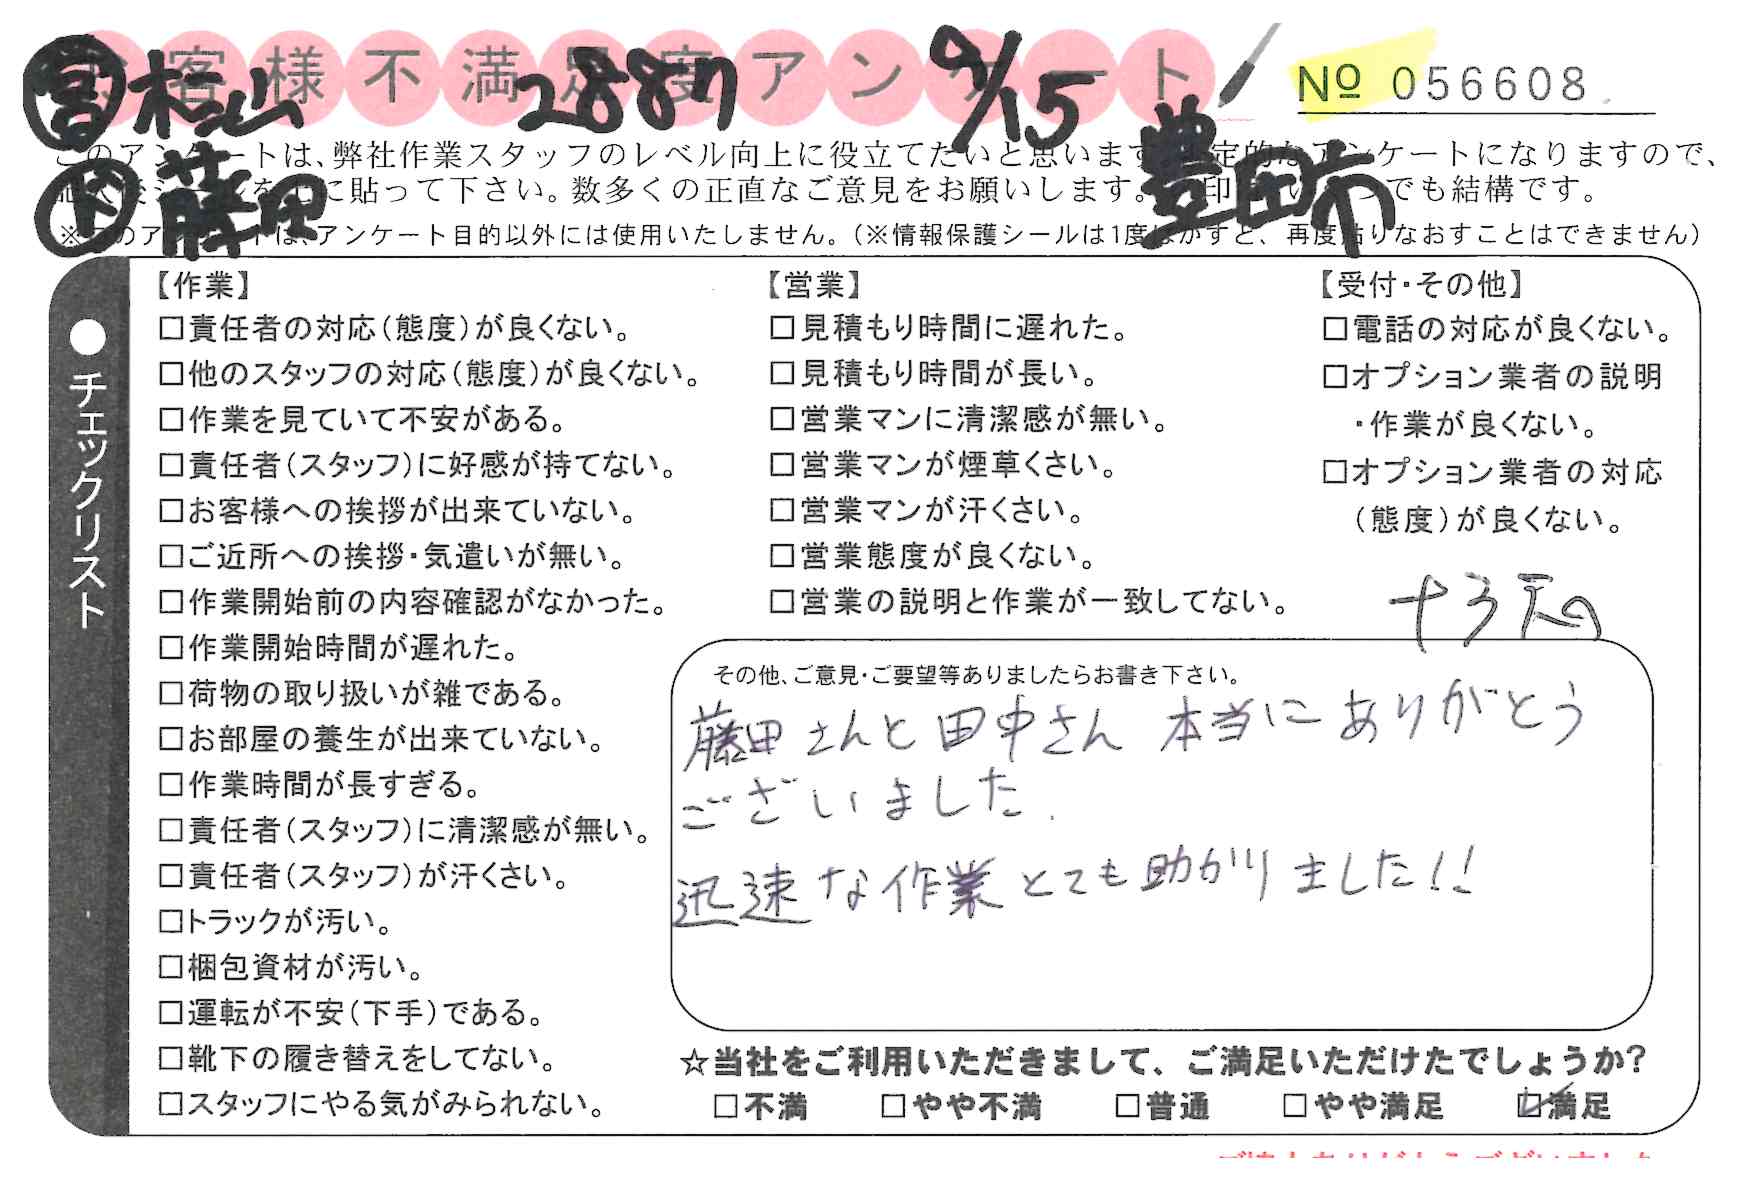 お客様不満足度アンケート
№ 056608
営 杉山 2887 9/15 豊田市
下 藤田
このアンケートは、弊社作業スタッフのレベル向上に役立てたいと思います。限定的なアンケートになりますので、
に貼って下さい。数多くの正直なご意見をお願いします。 でも結構です。
※このアンケートは、アンケート目的以外には使用いたしません。(※情報保護シールは1度はがすと、再度貼りなおすことはできません)
●チェックリスト
【作業】
□責任者の対応(態度)が良くない。
□他のスタッフの対応(態度)が良くない。
□作業を見ていて不安がある。
□責任者(スタッフ)に好感が持てない。
□お客様への挨拶が出来ていない。
□ご近所への挨拶・気遣いが無い。
□作業開始前の内容確認がなかった。
□作業開始時間が遅れた。
□荷物の取り扱いが雑である。
□お部屋の養生が出来ていない。
□作業時間が長すぎる。
□責任者(スタッフ)に清潔感が無い。
□責任者(スタッフ)が汗くさい。
□トラックが汚い。
□梱包資材が汚い。
□運転が不安(下手)である。
□靴下の履き替えをしてない。
□スタッフにやる気がみられない。
【営業】
□見積もり時間に遅れた。
□見積もり時間が長い。
□営業マンに清潔感が無い。
□営業マンが煙草くさい。
□営業マンが汗くさい。
□営業態度が良くない。
□営業の説明と作業が一致してない。
【受付・その他】
□電話の対応が良くない。
□オプション業者の説明
・作業が良くない。
□オプション業者の対応
(態度)が良くない。
その他、ご意見・ご要望等ありましたらお書き下さい。
藤田さんと田中さん 本当にありがとう
ございました.
迅速な作業とても助かりました!!
☆当社をご利用いただきまして、ご満足いただけたでしょうか?
□不満 □やや不満 □普通 □やや満足 ☑満足